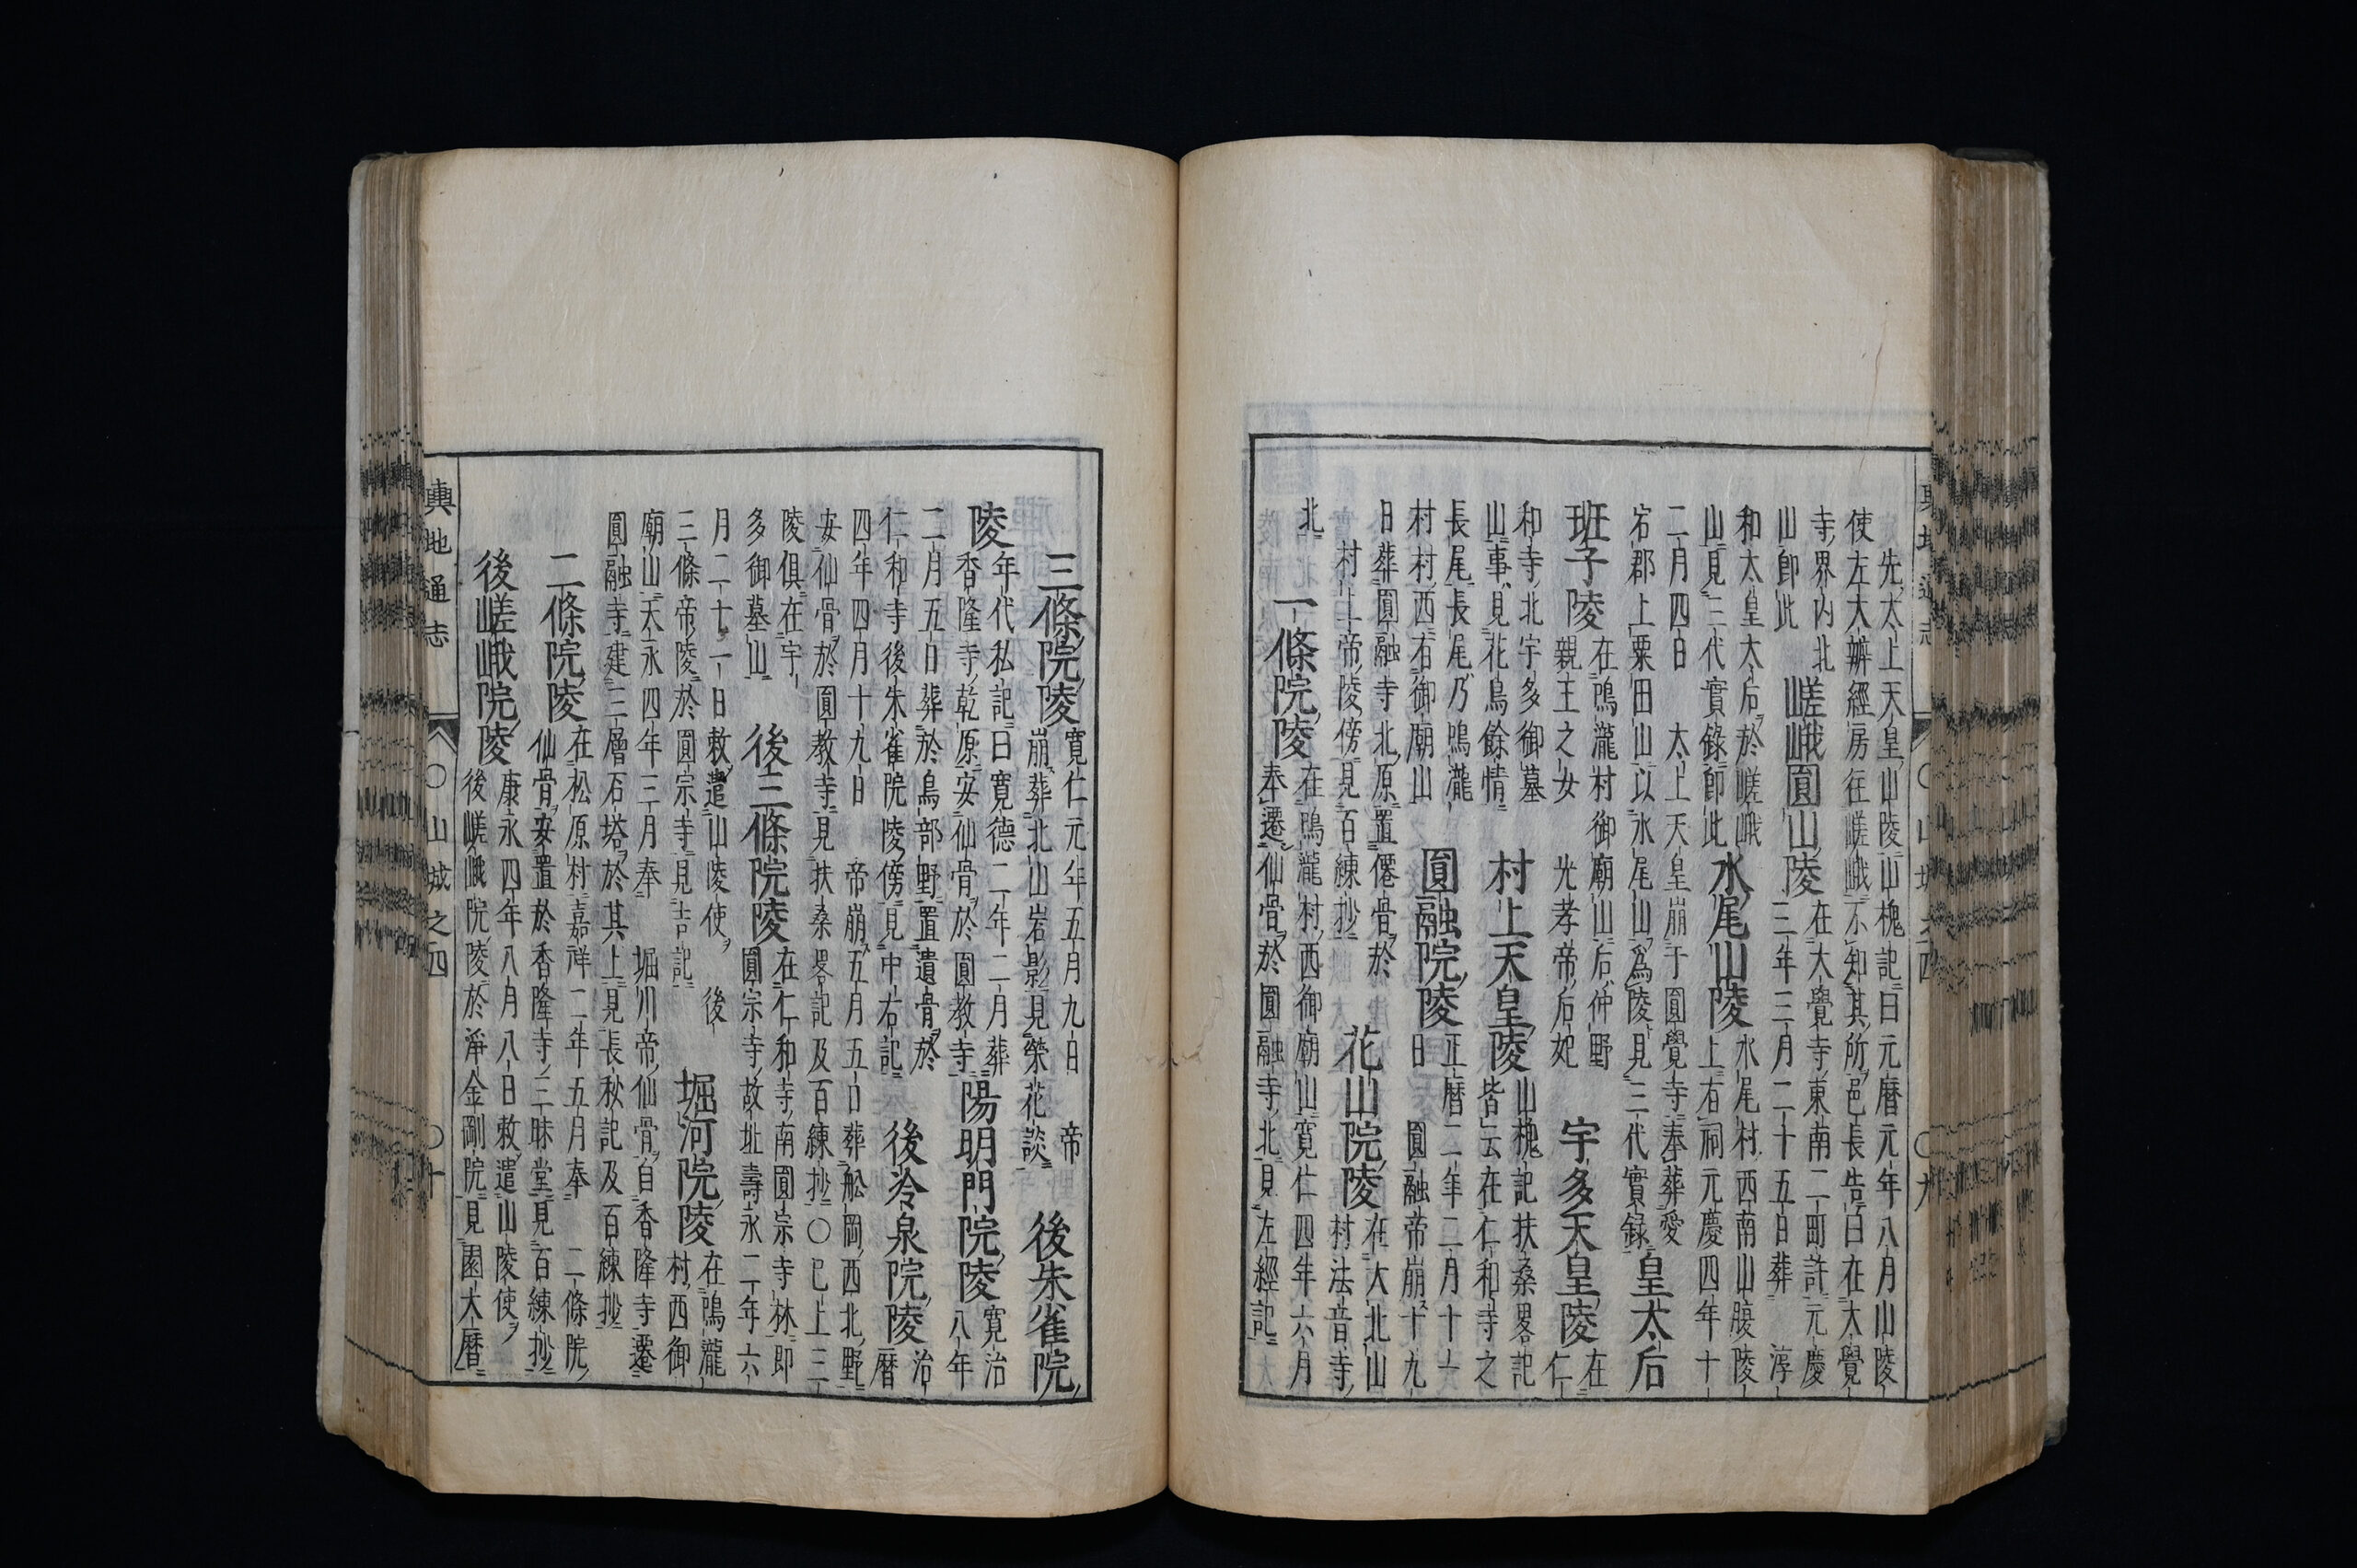 先太上天皇山陵山槐記曰元暦元年八月山陵
使左大辨經房往嵯峨不知其所邑長告曰在大覺
寺界内北
山卽此
嵯峨圓山陵
在大覺寺東南二町許元慶
三年三月二十五日葬 淳
和太皇太后於嵯峨
山見三代實錄卽此
水尾山陵
水尾村西南山腹陵
上右祠元慶四年十
二月四日 太上天皇崩于圓覺寺奉葬愛
宕郡上粟田山以水尾山爲陵見三代實録
皇太后
班子陵
在鳴瀧村御廟山后仲野
親王之女 光孝帝后妃
宇多天皇陵
在
仁
和寺北宇多御墓
山事見花鳥餘情
村上天皇陵
山槐記扶桑畧記
皆云在仁和寺之
長尾長尾乃鳴瀧
村村西右御廟山
圓融院陵
正暦二年二月十一
日 圓融帝崩十九
日葬圓融寺北原置僊骨於
村上帝陵傍見百練抄
花山院陵
在大北山
村法音寺
北
一條院陵
在鳴瀧村西御廟山寛仁四年六月
奉遷仙骨於圓融寺北見左經記
三條院陵
寛仁元年五月九日 帝
崩葬北山岩影見榮花談
後朱雀院
陵
年代私記曰寛德二年二月葬
香隆寺乾原安仙骨於圓教寺
陽明門院陵
寛治
八年
二月五日葬於鳥部野置遺骨於
仁和寺後朱雀院陵傍見中右記
後冷泉院陵
治
暦
四年四月十九日 帝崩五月五日葬舩岡西北野
安仙骨於圓教寺見扶桑畧記及百練抄〇已上三
陵俱在宇
多御墓山
後三條院陵
在仁和寺南圓宗寺林即
圓宗寺故址壽永二年六
月二十一日敕遣山陵使 後
三條帝陵於圓宗寺見吉記
堀河院陵
在鳴瀧
村西御
廟山天永四年三月奉 堀川帝仙骨自香隆寺遷
圓融寺建三層石塔於其上見長秋記及百練抄
二條院陵
在松原村嘉祥二年五月奉 二條院
仙骨安置於香隆寺三昧堂見百練抄
後嵯峨院陵
康永四年八月八日敕遣山陵使
後嵯峨院陵於淨金剛院見園大暦
輿地通志 〇山城之四 〇十